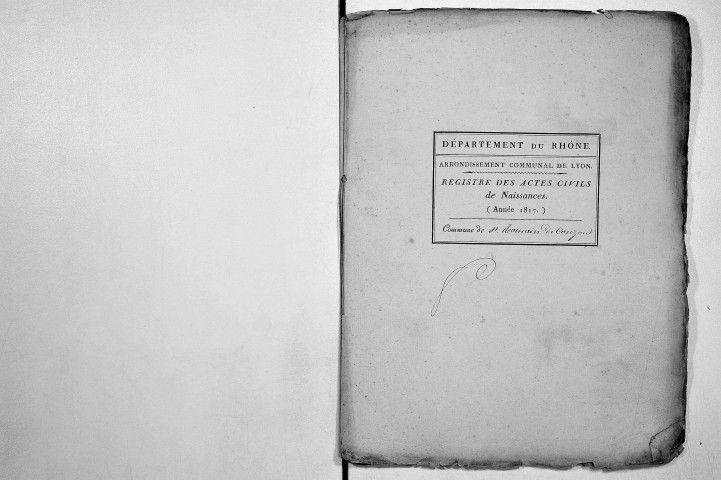 DÉPARTEMENT DU RHÔNE.
ARRONDISSEMENT COMMUNAL DE LYON.
REGISTRE DES ACTES CIVILS
de Naissances.
( Année 1817. )
Commune de St Romain de Couzon